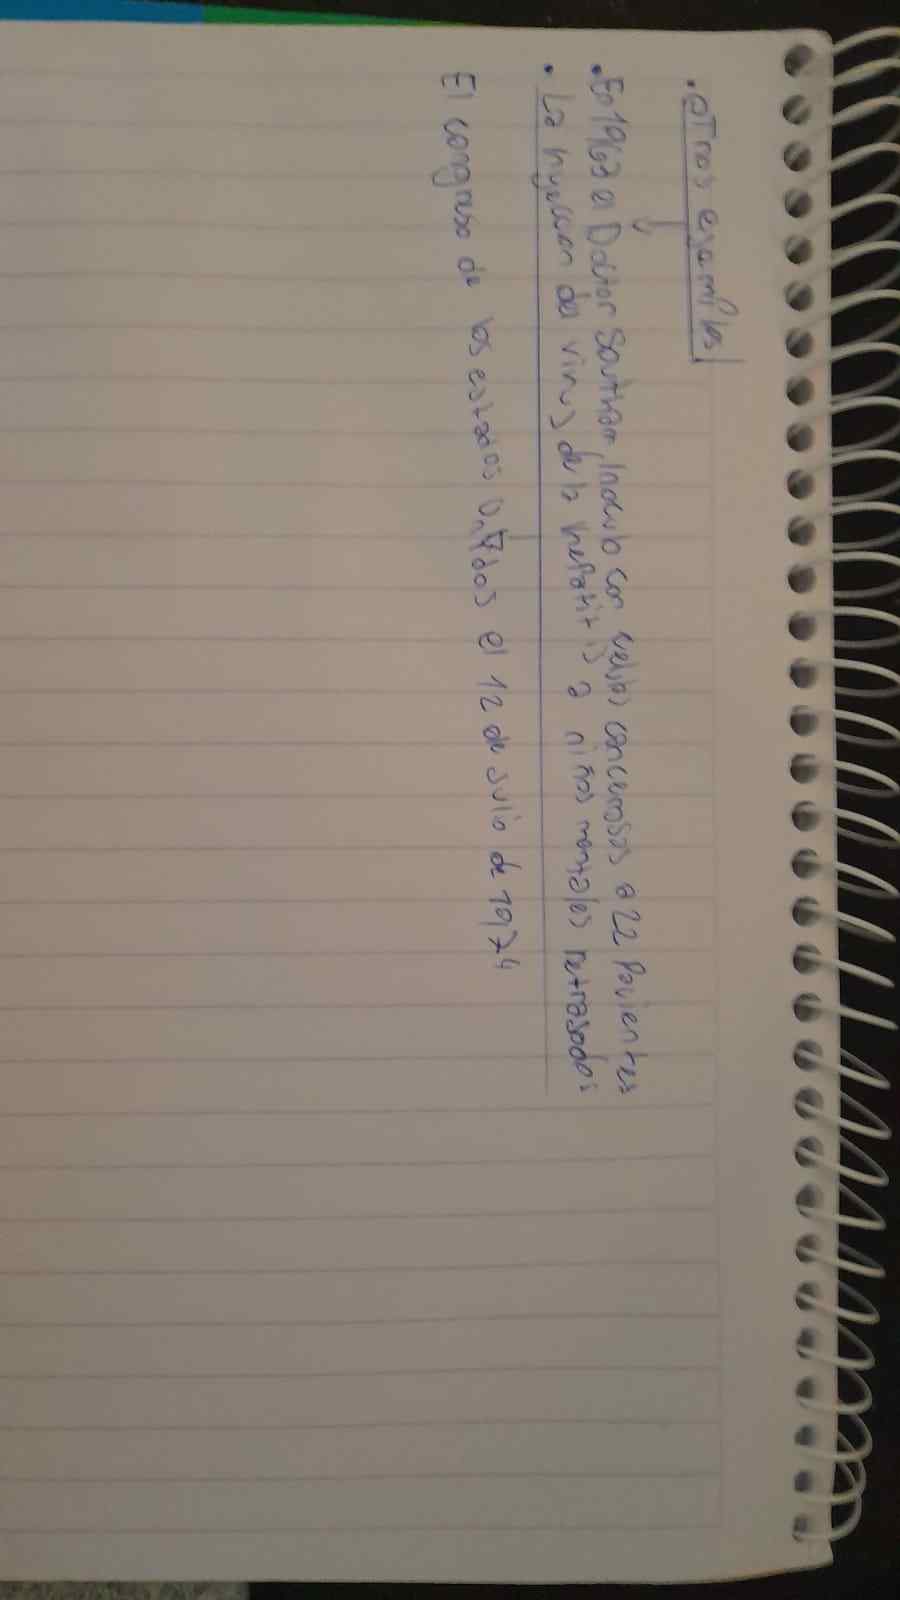 • OTros esamples
• En 1963 el Doctor Southam, Inoculo con celulas cancerosas a 22 Pacientes
• La inyeccion del virus de la hepatitis a niños mentales retrasados
El congreso de los estados unidos el 12 de Julio de 1974